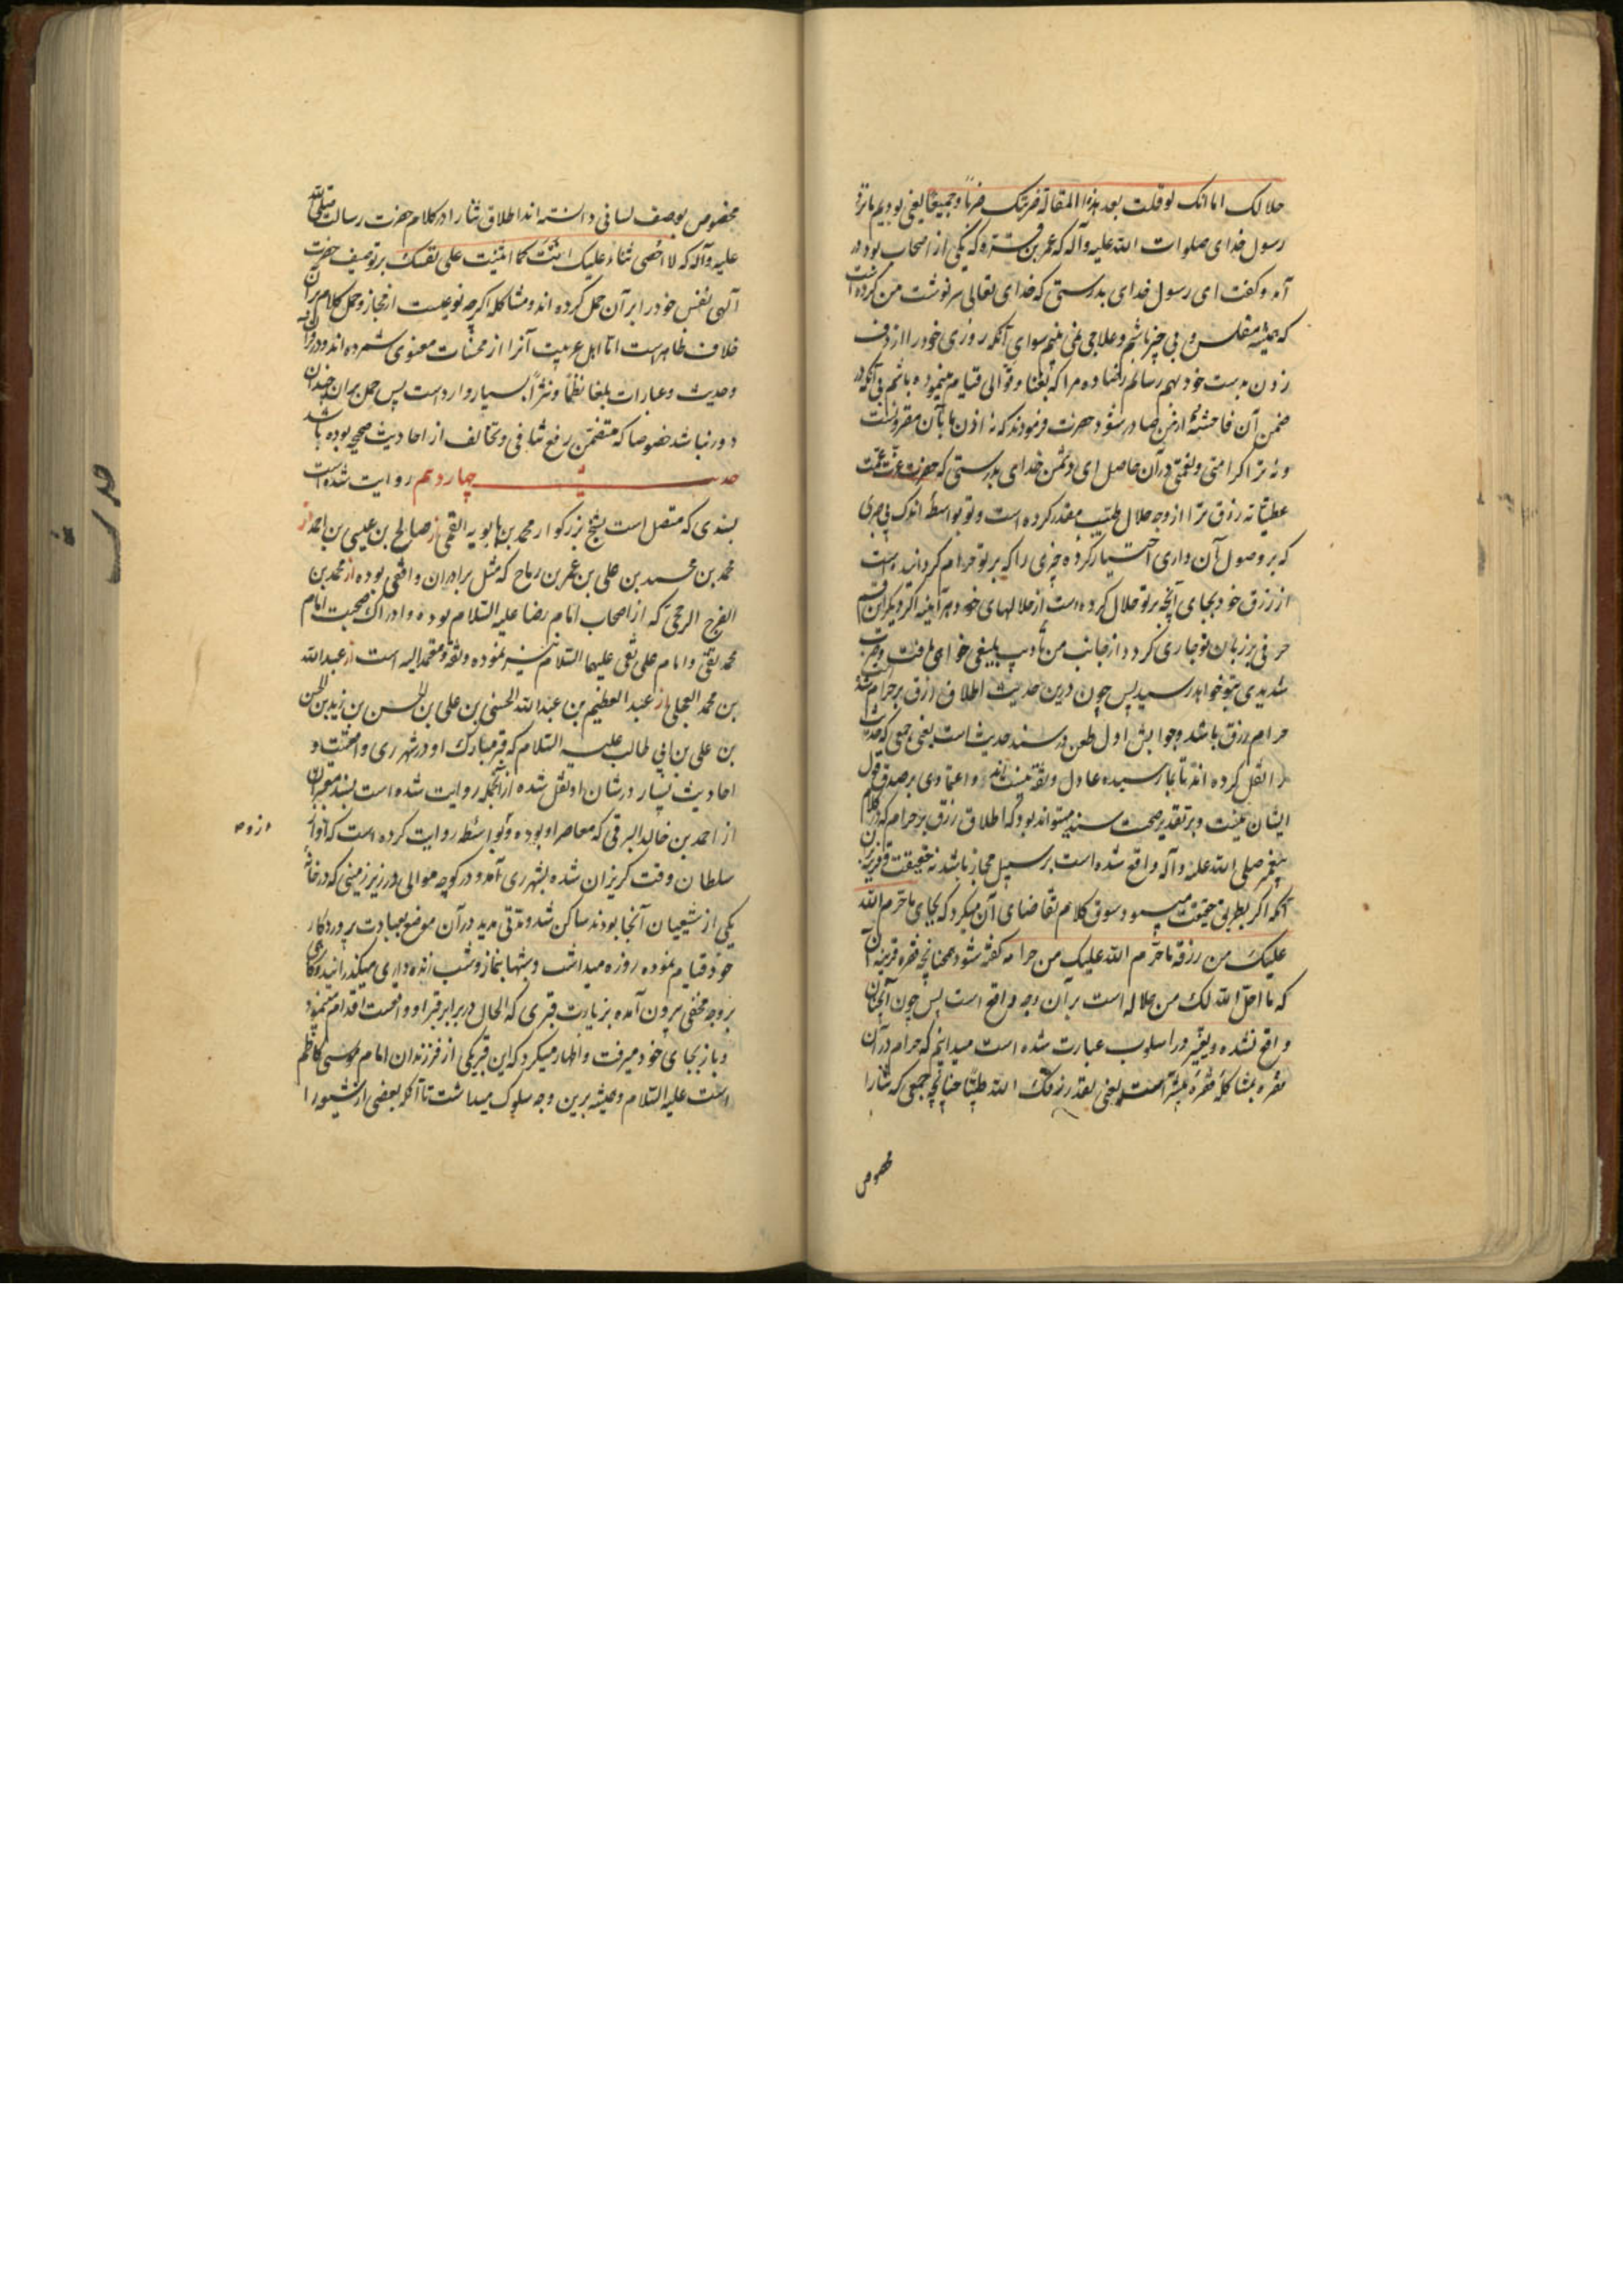 حلالک اما انک لو قلت بعد هذه المقالة ضربتک ضرباً وجیعاً یعنی بودیم ما نزد
رسول خدای صلوات الله علیه وآله که عمر بن قره که یکی از اصحاب بود در
آمد و کفت ای رسول خدای بدرستی که خدای تعالی سرنوشت من کرده است
که همیشه مفلس و بی چیز باشم و علاجی نمی بینم سوای آنکه روزی خود را از دف
زدن بدست خود بهم رسانم رضا ده مرا که بغنا و قوالی قیام مینموده باشم بی آنکه در
ضمن آن فاحشه از من صادر شود حضرت فرمودند که نه اذن ما بآن مقرونست
و نه ترا اکرامتی و نعمتی در آن حاصل ای دشمن خدای بدرستی که حضرت عزت عمت
عطیّاته رزق ترا از وجه حلال طیّب مقدر کرده است و تو بواسطهٔ اندک بی صبری
که بر وصول آن داری اختیار کرده چیزی را که بر تو حرام کردانیده است
از رزق خود بجای آنچه بر تو حلال کرده است از حلالهای خود و هرآینه اکر دیکر این قسم
حرفی بر زبان تو جاری کردد از جانب من تأدیب بلیغی خواهی یافت و ضرب
شدیدی بتو خواهد رسید پس چون درین حدیث اطلاق رزق بر حرام شده
حرام رزق باشد و جوابش اول طعن در سند حدیث است یعنی جمعی که حدیث
را نقل کرده اند تا بما رسیده عادل و ثقه نیستند و اعتمادی بر صدق قول
ایشان نیست و بر تقدیر صحت سند میتواند بود که اطلاق رزق بر حرام که در کلام
پیغمبر صلی الله علیه وآله واقع شده است بر سبیل مجاز باشد نه حقیقت و قرینه آن
آنکه اکر بطریق حقیقت میبود سوق کلام تقاضای آن میکرد که بجای ما حرّم الله
علیک من رزقه ما حرّم الله علیک من حرامه کفته شود همچنانچه فقره قرینه آن
که ما احلّ الله لک من حلاله است بر آن وجه واقع است پس چون آنچنان
واقع نشده و تغییر در اسلوب عبارت شده است میدانیم که حرام در آن
فقره بمشاکلهٔ فقرهٔ پیشتر است یعنی لقد رزقک الله طیّبا چنانچه جمعی که ثنا را
مخصوص
مخصوص بوصف لسانی دانسته اند اطلاق ثنا را در کلام حضرت رسالت صلی الله
علیه وآله که لا احصی ثناء علیک انت کما اثنیت علی نفسک بر توصیف حضرت
آلهی نفس خود را بر آن حمل کرده اند و مشاکله اکرچه نوعیست از مجاز و حمل کلام بر آن
خلاف ظاهرست اما اهل عربیت آنرا از محسنات معنوی شمرده اند و در قرآن
وحدیث و عبارات بلغا نظماً و نثراً بسیار وارد است پس حمل بر آن چندان
دور نباشد خصوصا که متضمن رفع تنافی و تخالف از احادیث صحیحه بوده باشد
حدیث چهاردهم روایت شده است
بسندی که متصل است بشیخ بزرکوار محمد بن بابویه القمی از صالح بن عیسی بن احمد از
محمد بن محمد بن علی بن عمر بن رماح که مثل برادران واقفی بوده از محمد بن
الفرج الرخجی که از اصحاب امام رضا علیه السلام بوده و ادراک صحبت امام
محمد تقی و امام علی نقی علیهما السلام نیز نموده و ثقه و معتمد الیه است از عبدالله
بن محمد العجلی از عبدالعظیم بن عبدالله الحسنی بن علی بن الحسن بن زید بن الحسن
بن علی بن ابی طالب علیه السلام که قبر مبارک او در شهر ری واقعست و
احادیث بسیار در شان او نقل شده از آنجمله روایت شده است بسند معتبر
از احمد بن خالد البرقی که معاصر او بوده و بواسطه روایت کرده است که او از
سلطان وقت کریزان شده بشهر ری آمد و در کوچه موالی در زیر زمینی که در خانه
یکی از شیعیان آنجا بود ساکن شد و مدتی مدید در آن موضع بعبادت پروردکار
خود قیام نموده روزه میداشت و شبها بنماز و شب زنده داری میکذرانید و کاهی
بر وجه مخفی بیرون آمده بزیارت قبری که الحال در برابر قبر او واقعست اقدام مینمود
و باز بجای خود میرفت و اظهار میکرد که این قبر یکی از فرزندان امام موسی کاظم
است علیه السلام و همیشه برین وجه سلوک میداشت تا آنکه بعضی از شیعه را
حدیث